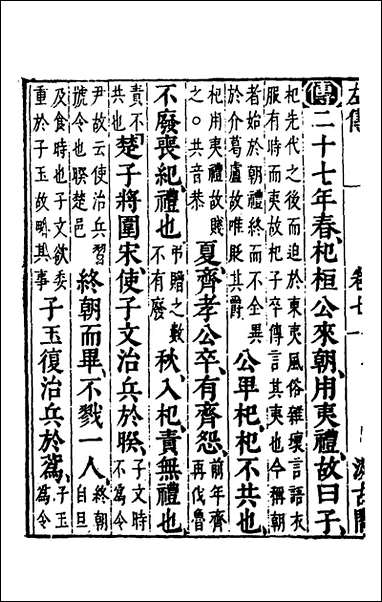 左傳
傳二十七年春、杞桓公來朝、用夷禮、故曰子、
杞先代之後而迫於東夷風俗雜壞言語衣
服有時而夷故杞子卒傳言其夷也今稱朝
者始於朝禮終而不全異
於介葛盧故唯貶其爵
公卑杞、杞不共也、
杞用夷禮故賤
之○共音恭
夏、齊孝公卒、有齊怨、
前年齊
再伐魯
不廢喪紀、禮也、
弔贈之數
不有廢
秋、入杞、責無禮也、
責不
共也
楚子將圍宋、使子文治兵於睽、
子文時
不爲令
尹故云使治兵習
號令也睽楚邑
終朝而畢、不戮一人、
終朝
自旦
及食時也子文欲委
重於子玉故略其事
子玉復治兵於蒍、
子玉
爲令